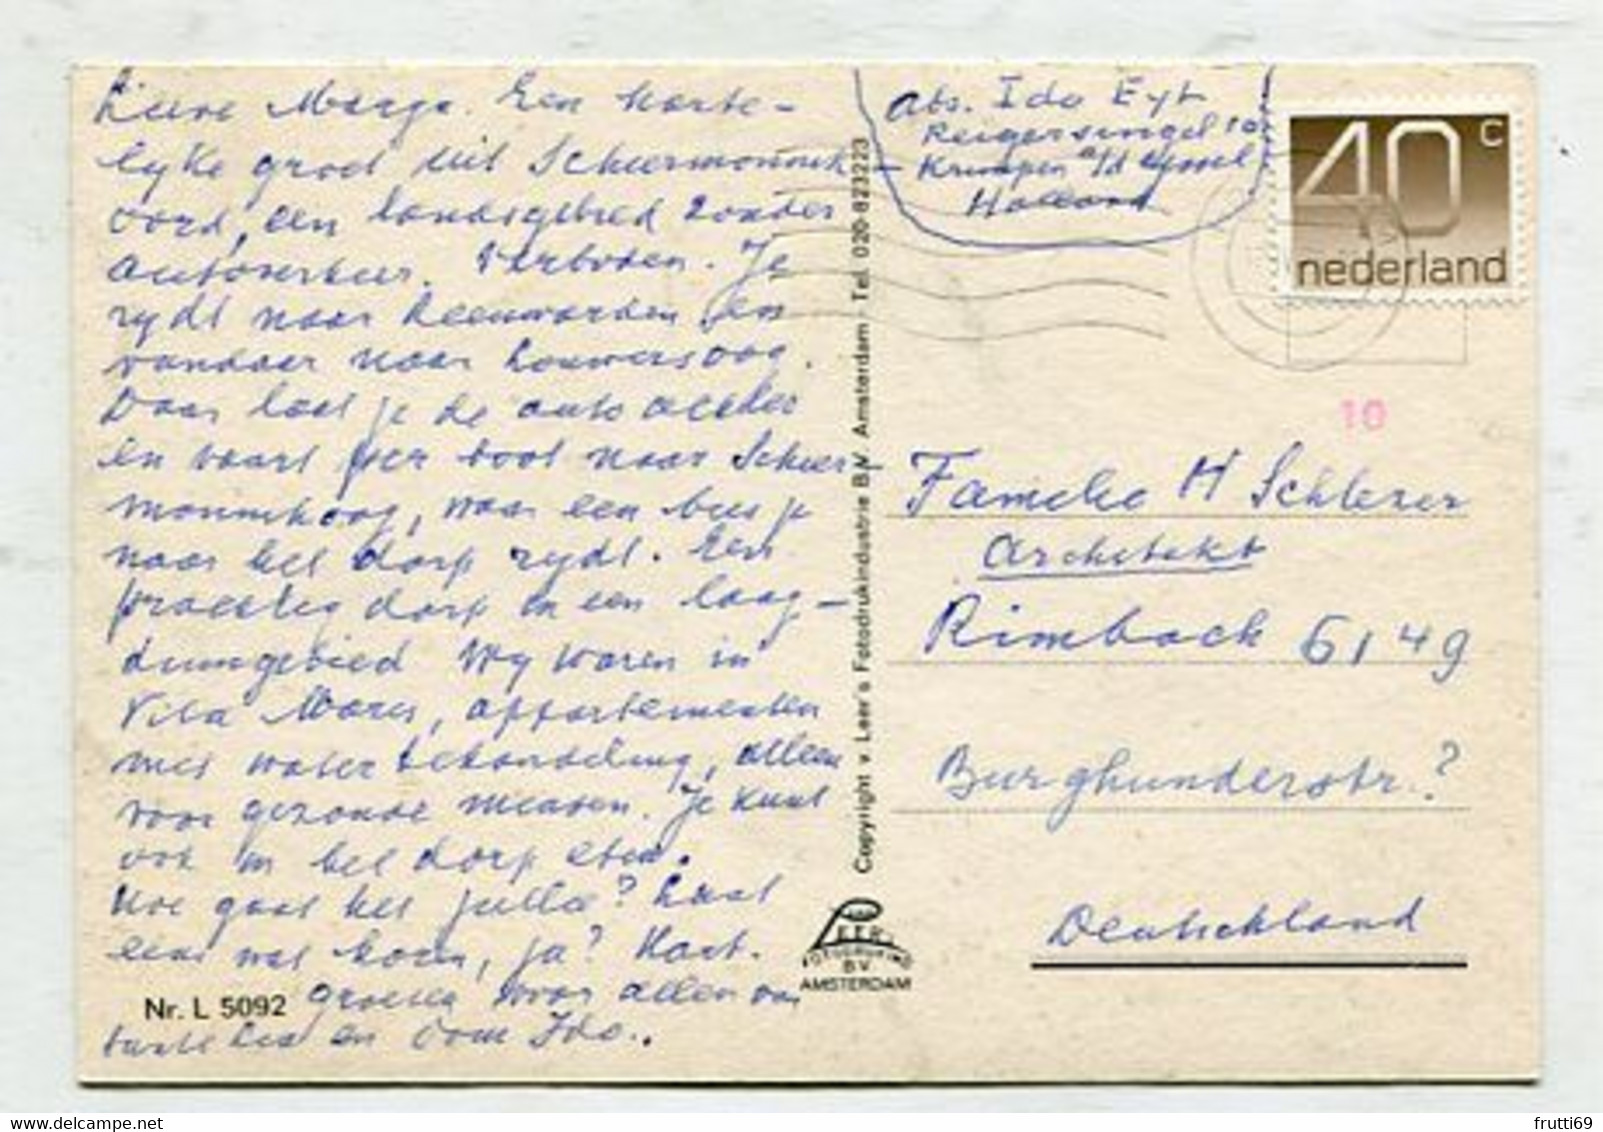 Lieve Marga. Een harte-
lyke groet uit Schiermonnik-
oord, een landsgebied zonder
autoverkeer. Verboden. Je
rydt naar Leeuwarden en
vandaar naar Louwersoog.
Daar laat je de auto achter
en vaart per boot naar Schier-
monnikoog, waar een bus je
naar het dorp rydt. Een
prachtig dorp in een laag-
duingebied Wy waren in
Villa Mares, appartementen
met waterbehandeling, alleen
voor gezonde mensen. Je kunt
ook in het dorp eten.
Hoe gaat het jullie? Laat
eens wat horen, ja? Hart.
groeten voor allen van
tante Lea en oom Ido..
Nr. L 5092
Copyright v. Leer's Fotodrukindustrie B.V. Amsterdam - Tel. 020-823223
LEER
FOTODRUKIND
B V
AMSTERDAM
Abs. Ido Eyt
Reigersingel 10
Krimpen a/d Yssel
Holland
40 c
nederland
10
Familie H Schlerer
Architekt
Rimbach 6149
Burghunderstr.?
Deutschland
frutti69
delcampe.net